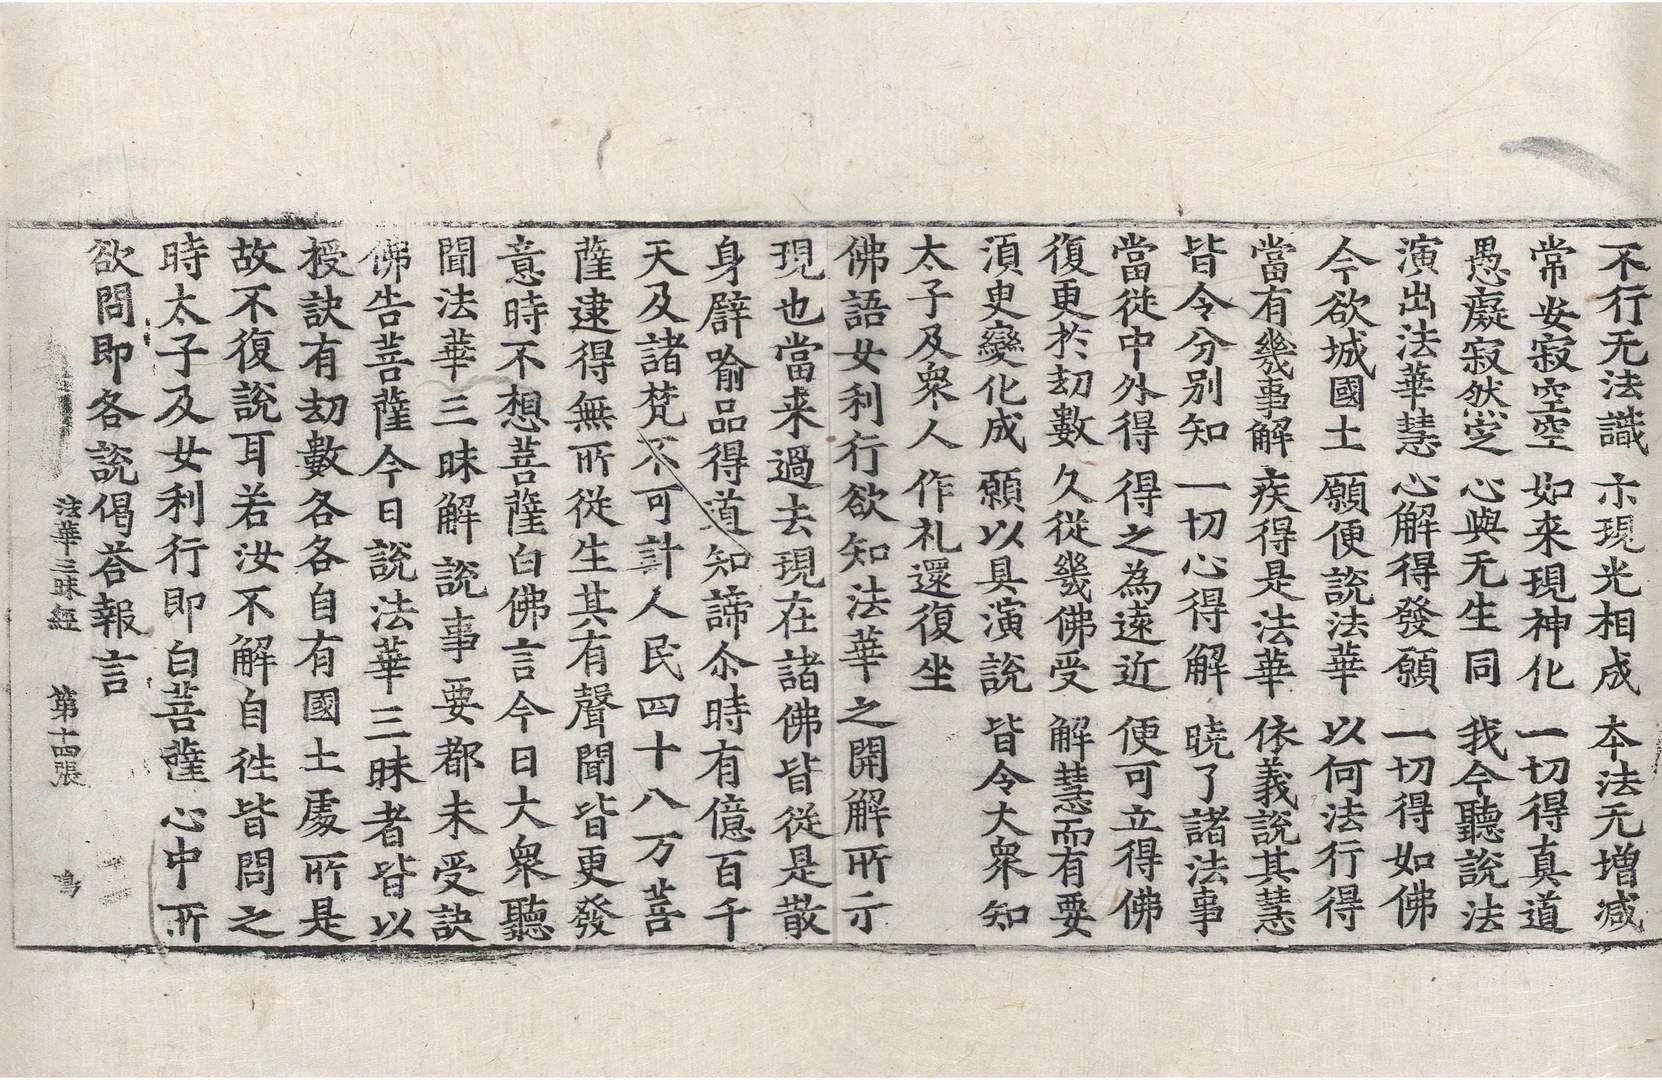 不行无法識 示現光相成 本法无增减
常安寂空空 如来現神化 一切得真道
愚癡寂然定 心與无生同 我今聽說法
演出法華慧 心解得發願 一切得如佛
今欲城國土 願便說法華 以何法行得
當有幾事解 疾得是法華 依義說其慧
皆令分別知 一切心得解 曉了諸法事
當從中外得 得之為遠近 便可立得佛
復更於劫數 久從幾佛受 解慧而有要
須臾變化成 願以具演說 皆令大衆知
太子及衆人 作礼還復坐
佛語女利行欲知法華之開解所示
現也當来過去現在諸佛皆從是散
身譬喻品得道知諦尒時有億百千
天及諸梵不可計人民四十八万菩
薩逮得無所從生其有聲聞皆更發
意時不想菩薩白佛言今日大衆聽
聞法華三昧解說事要都未受訣
佛告菩薩今日說法華三昧者皆以
授訣有劫數各各自有國土處所是
故不復說耳若汝不解自往皆問之
時太子及女利行即白菩薩心中所
欲問即各說偈荅報言
法華三昧經 第十四張